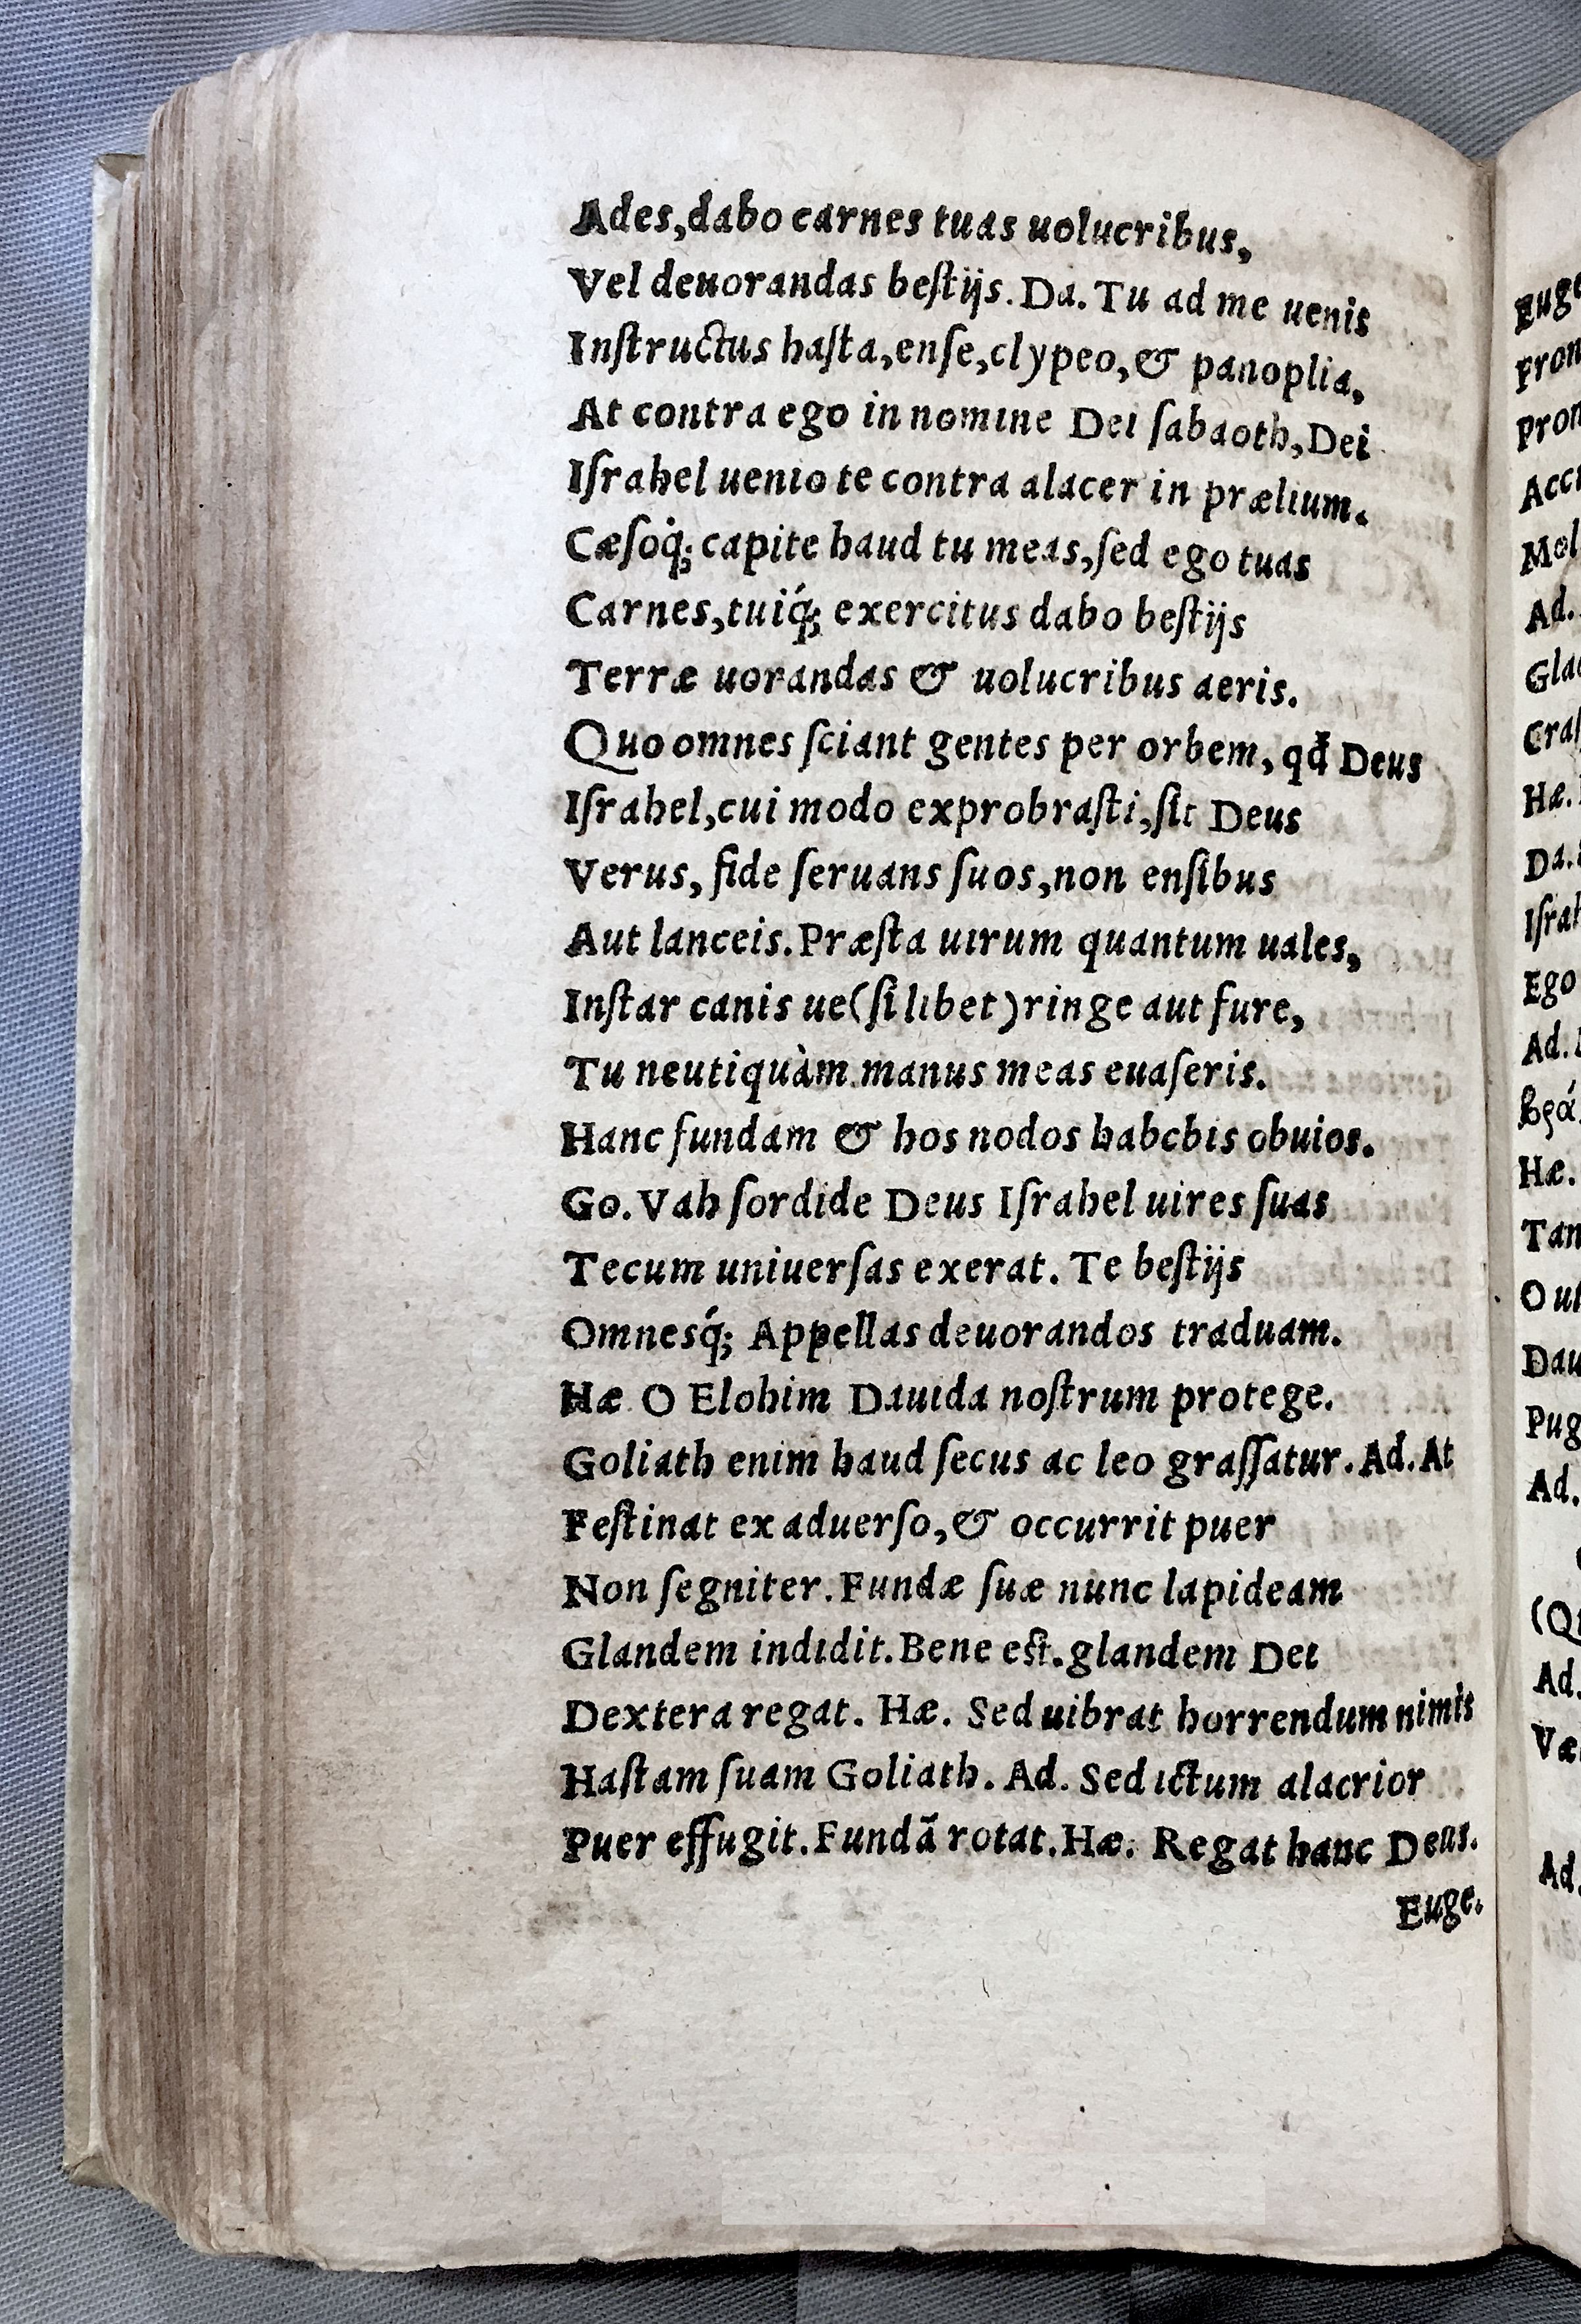 Ades, dabo carnes tuas uolucribus,
Vel deuorandas beſtijs. Da. Tu ad me uenis
Inſtructus haſta, enſe, clypeo, & panoplia,
At contra ego in nomine Dei ſabaoth, Dei
Iſrahel uenio te contra alacer in prælium.
Cæſoq́; capite haud tu meas, ſed ego tuas
Carnes, tuiq́; exercitus dabo beſtijs
Terræ uorandas & uolucribus aeris.
Quo omnes ſciant gentes per orbem, qđ Deus
Iſrahel, cui modo exprobraſti, ſit Deus
Verus, fide ſeruans ſuos, non enſibus
Aut lanceis. Præſta uirum quantum uales,
Inſtar canis ue (ſi libet) ringe aut fure,
Tu neutiquàm manus meas euaſeris.
Hanc fundam & hos nodos habebis obuios.
Go. Vah ſordide Deus Iſrahel uires ſuas
Tecum uniuerſas exerat. Te beſtijs
Omnesq́; Appellas deuorandos traduam.
Hæ O Elohim Dauida noſtrum protege.
Goliath enim haud ſecus ac leo graſſatur. Ad. At
Feſtinat ex aduerſo, & occurrit puer
Non ſegniter. Fundæ ſuæ nunc lapideam
Glandem indidit. Bene eſt. glandem Dei
Dextera regat. Hæ. Sed uibrat horrendum nimis
Haſtam ſuam Goliath. Ad. Sed ictum alacrior
Puer effugit. Fundã rotat. Hæ. Regat hanc Deus.
Euge.
Euge
Fron
Pron
Acci
Mol
Ad.
Glad
Craſ
Hæ.
Da.
Iſrah
Ego
Ad.
Hæ.
Tan
O ut
Dau
Pug
Ad.
(Qu
Ad.
Væ
Ad.